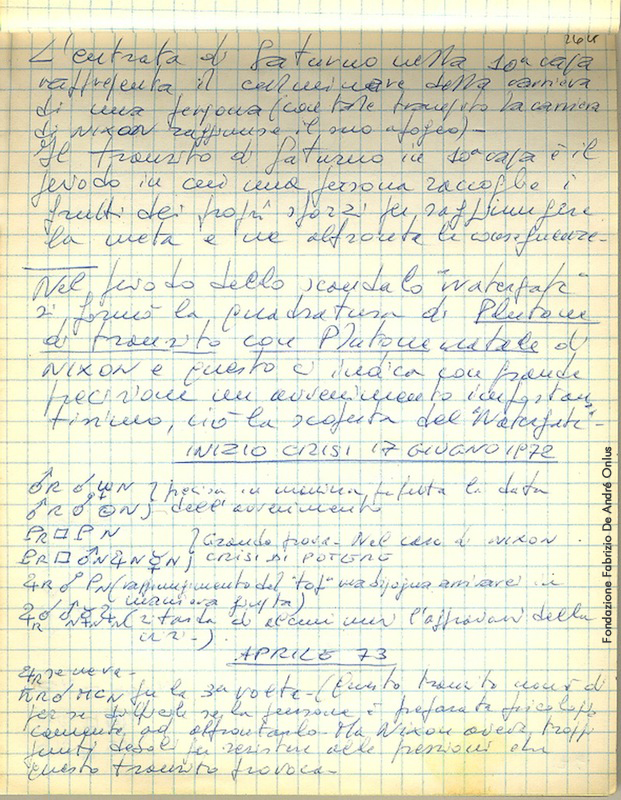 L'entrata di Saturno nella 10ª casa
rappresenta il culminare della carriera
di una persona (con tale transito la carriera
di NIXON raggiunse il suo apogeo) -
Il transito di Saturno in 10ª casa è il
periodo in cui una persona raccoglie i
frutti dei propri sforzi per raggiungere
la meta e ne affronta le conseguenze -
Nel periodo dello scandalo "Watergate"
si formò la quadratura di Plutone
di transito con Plutone natale di
NIXON e questo ci indica con grande
precisione un avvenimento importan
tissimo, cioè la scoperta del "Watergate" -
INIZIO CRISI 17 GIUGNO 1972
precisa in maniera perfetta la data
dell'avvenimento
Grande prova - Nel caso di NIXON
CRISI DI POTERE
(raggiungimento del "top" ma bisogna arrivarci in
maniera giusta)
della
APRILE 73
per la 3ª volta - (Questo transito non è di
per se difficile se la persona è preparata psicologi
camente ad affrontarlo - Ma Nixon aveva troppi
punti deboli per resistere alle pressioni che
questo transito provoca -
Fondazione Fabrizio De André Onlus